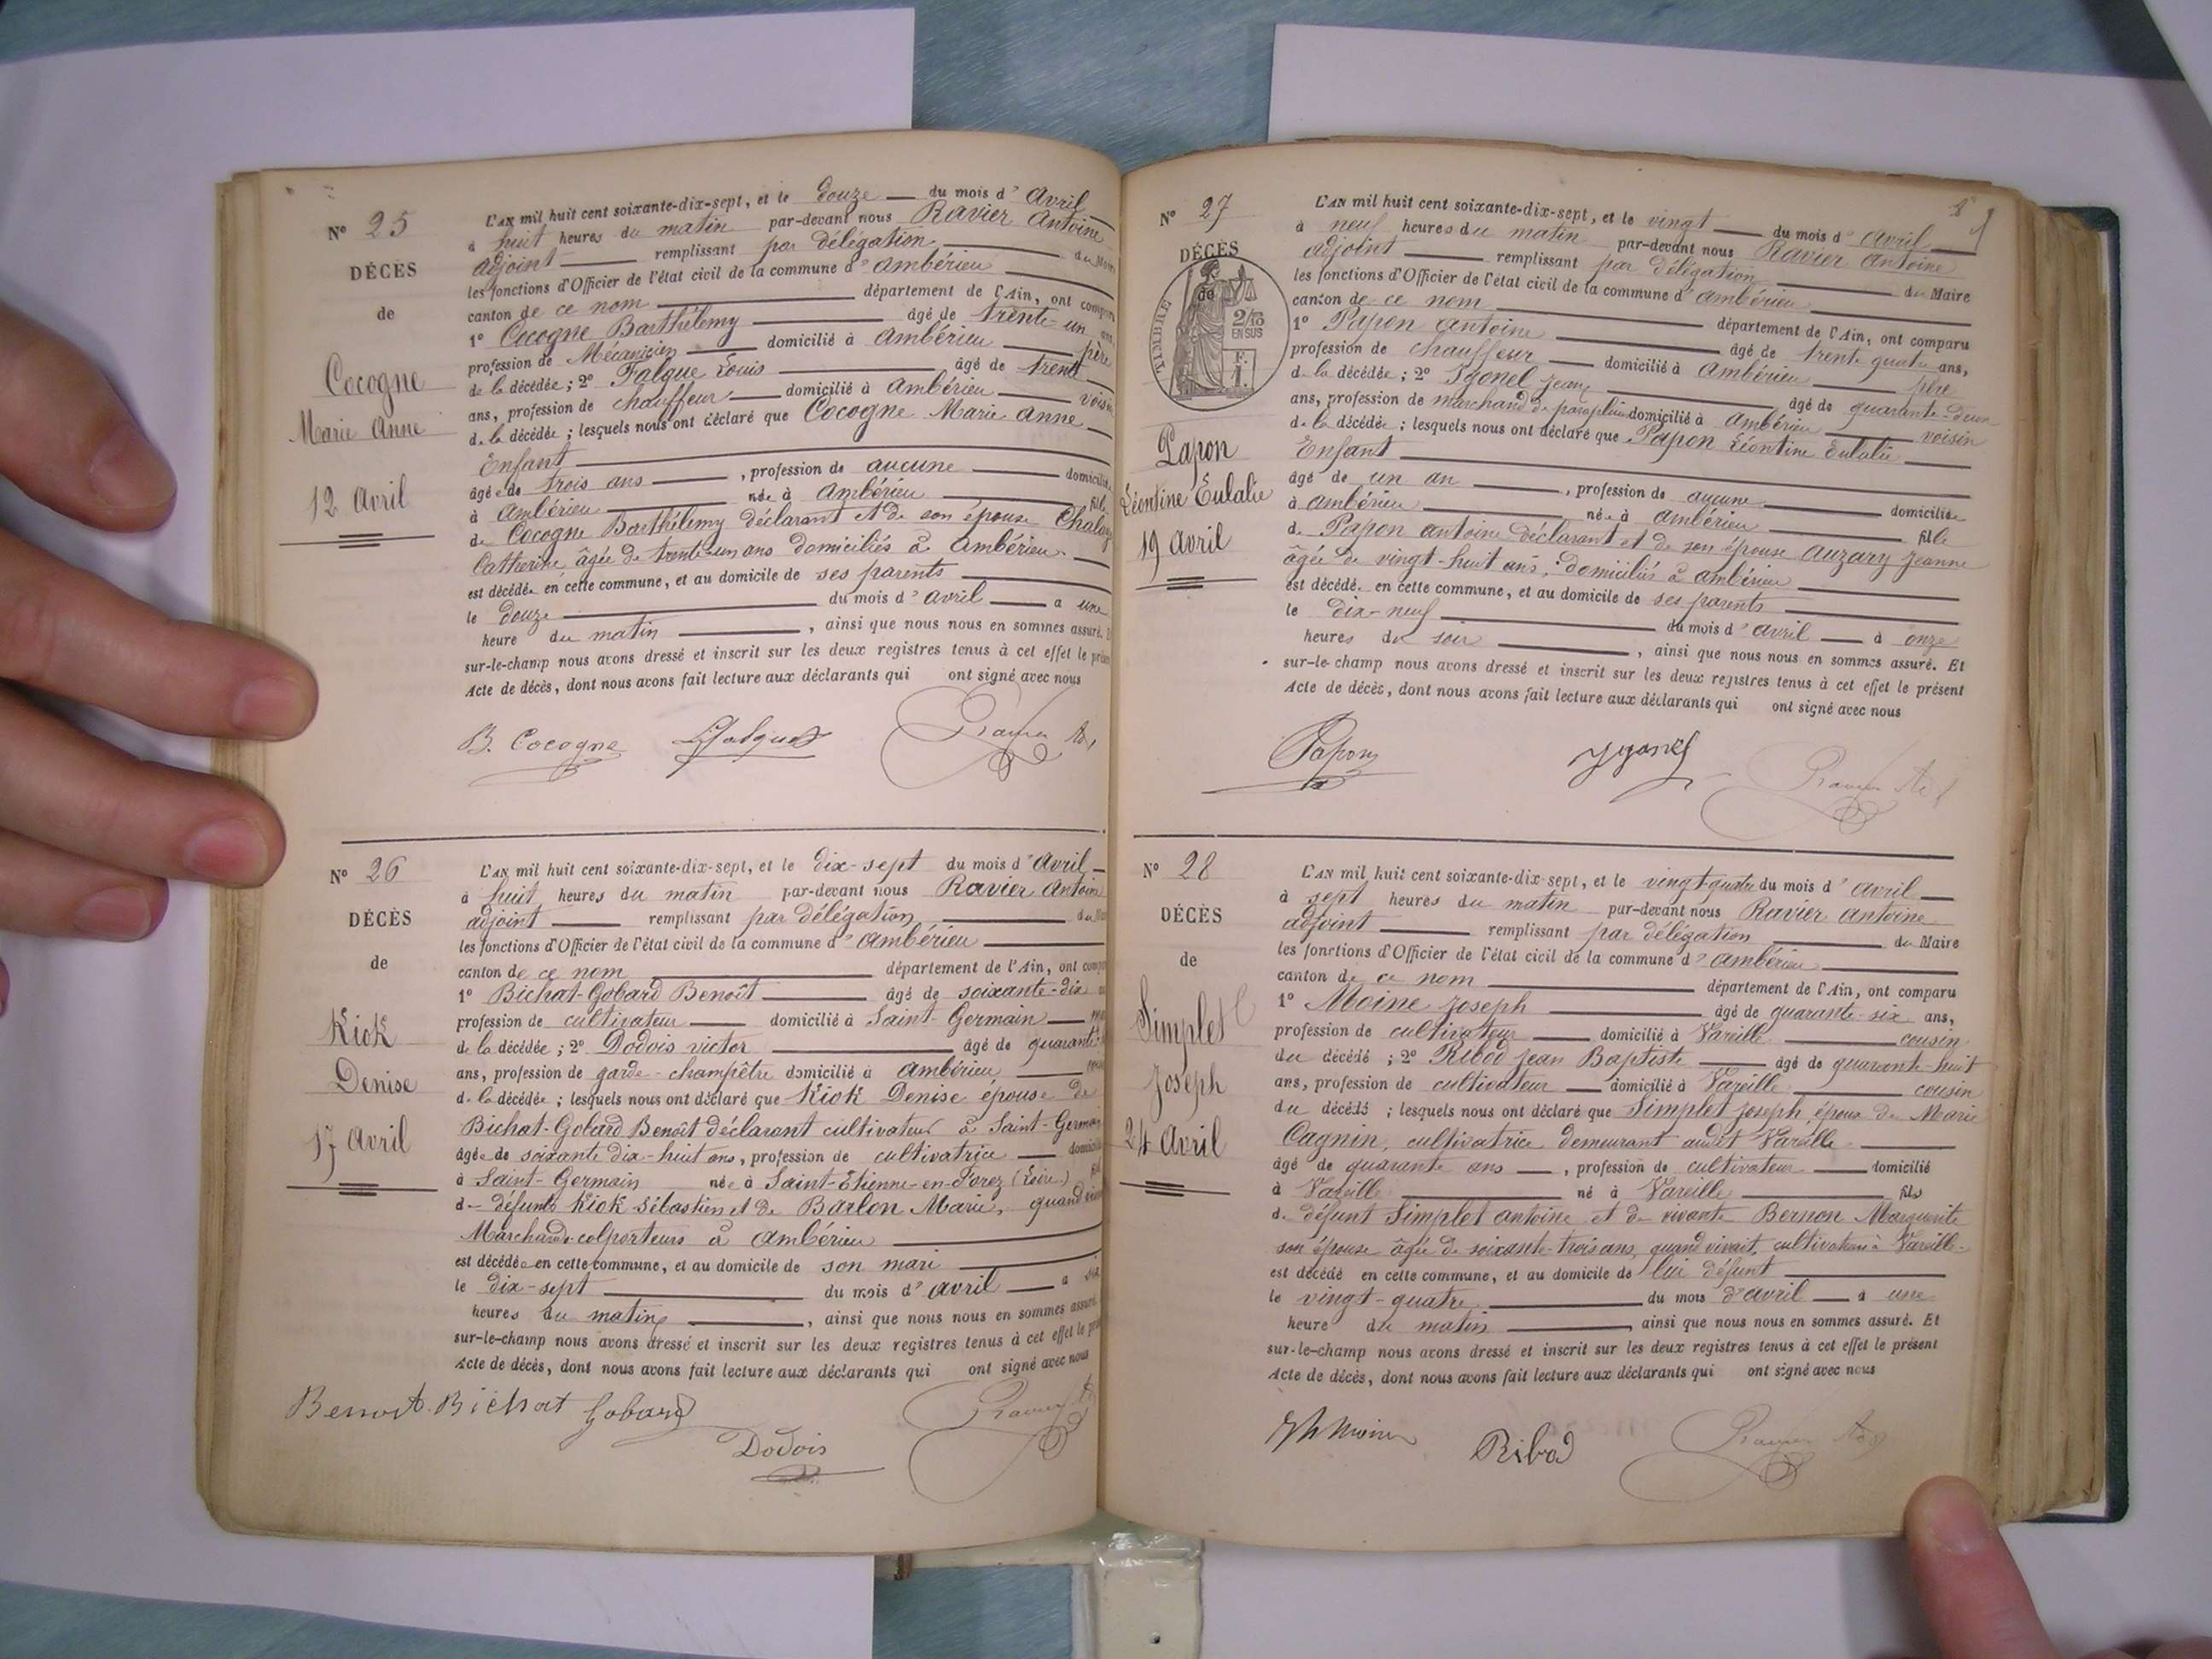 N° 25
DÉCÈS
de
Cocogne
Marie Anne
12 Avril
L'AN mil huit cent soixante-dix-sept, et le douze du mois d' Avril
à huit heures du matin par-devant nous Ravier Antoine
adjoint remplissant par délégation du Maire
les fonctions d'Officier de l'état civil de la commune d' Ambérieu
canton de ce nom département de l'Ain, ont comparu
1° Cocogne Barthélemy âgé de trente-un ans,
profession de Mécanicien domicilié à Ambérieu père
de la décédée ; 2° Falque Louis âgé de trente
ans, profession de chauffeur domicilié à Ambérieu voisin
de la décédée ; lesquels nous ont déclaré que Cocogne Marie Anne
Enfant
âgée de trois ans , profession de aucune domiciliée
à Ambérieu née à Ambérieu fille
de Cocogne Barthélemy déclarant et de son épouse
Catherine âgée de trente-un ans domiciliés à Ambérieu
est décédée en cette commune, et au domicile de ses parents
le douze du mois d' avril à une
heure du matin , ainsi que nous nous en sommes assuré. Et
sur-le-champ nous avons dressé et inscrit sur les deux registres tenus à cet effet le présent
Acte de décès, dont nous avons fait lecture aux déclarants qui ont signé avec nous
B. Cocogne Ravier
N° 26
DÉCÈS
de
Kiok
Denise
17 Avril
L'AN mil huit cent soixante-dix-sept, et le dix-sept du mois d' Avril
à huit heures du matin par-devant nous Ravier Antoine
adjoint remplissant par délégation du Maire
les fonctions d'Officier de l'état civil de la commune d' Ambérieu
canton de ce nom département de l'Ain, ont comparu
1° Bichat-Gobard Benoît âgé de soixante-dix
profession de cultivateur domicilié à Saint-Germain mari
de la décédée ; 2° Dodois victor âgé de quarante
ans, profession de garde-champêtre domicilié à Ambérieu
de la décédée ; lesquels nous ont déclaré que Kiok Denise épouse de
Bichat-Gobard Benoît déclarant cultivateur à Saint-Germain
âgée de soixante dix-huit ans , profession de cultivatrice domiciliée
à Saint-Germain née à Saint-Étienne-en-Forez (Loire)
de défunts Kiok Sébastien et de Barlon Marie, quand
Marchands-colporteurs à Ambérieu
est décédée en cette commune, et au domicile de son mari
le dix-sept du mois d' avril à six
heures du matin , ainsi que nous nous en sommes assuré.
sur-le-champ nous avons dressé et inscrit sur les deux registres tenus à cet effet le présent
Acte de décès, dont nous avons fait lecture aux déclarants qui ont signé avec nous
Benoit Bichat Gobard
Dodois
Ravier
N° 27
DÉCÈS
de
TIMBRE
2/10
EN SUS
Papon
Léontine Eulalie
19 Avril
L'AN mil huit cent soixante-dix-sept, et le vingt du mois d' avril
à neuf heures du matin par-devant nous Ravier Antoine
adjoint remplissant par délégation du Maire
les fonctions d'Officier de l'état civil de la commune d' Ambérieu
canton de ce nom département de l'Ain, ont comparu
1° Papon Antoine âgé de trente quatre ans,
profession de chauffeur domicilié à Ambérieu père
de la décédée ; 2° Ygonel Jean âgé de quarante-deux
ans, profession de marchand de parapluies domicilié à Ambérieu voisin
de la décédée ; lesquels nous ont déclaré que Papon Léontine Eulalie
Enfant
âgé de un an , profession de aucune domiciliée
à Ambérieu née à Ambérieu fille
de Papon Antoine déclarant et de son épouse Auzary Jeanne
âgée de vingt-huit ans, domiciliés à Ambérieu
est décédée en cette commune, et au domicile de ses parents
le dix-neuf du mois d' avril à onze
heures du soir , ainsi que nous nous en sommes assuré. Et
sur-le-champ nous avons dressé et inscrit sur les deux registres tenus à cet effet le présent
Acte de décès, dont nous avons fait lecture aux déclarants qui ont signé avec nous
Papon Ygonel Ravier
N° 28
DÉCÈS
de
Simplet
Joseph
24 Avril
L'AN mil huit cent soixante-dix-sept, et le vingt-quatre du mois d' avril
à sept heures du matin par-devant nous Ravier Antoine
adjoint remplissant par délégation du Maire
les fonctions d'Officier de l'état civil de la commune d' Ambérieu
canton de ce nom département de l'Ain, ont comparu
1° Moine Joseph âgé de quarante-six ans,
profession de cultivateur domicilié à Vareille cousin
du décédé ; 2° Ribod Jean Baptiste âgé de quarante-huit
ans, profession de cultivateur domicilié à Vareille cousin
du décédé ; lesquels nous ont déclaré que Simplet Joseph, époux de Marie
Cagnin, cultivatrice demeurant audit Vareille
âgé de quarante ans , profession de cultivateur domicilié
à Vareille né à Vareille fils
de défunt Simplet Antoine et de vivante Bernon Marguerite
son épouse âgée de soixante-trois ans, quand vivait, cultivateurs à Vareille
est décédé en cette commune, et au domicile de lui défunt
le vingt-quatre du mois d'avril à une
heure du matin , ainsi que nous nous en sommes assuré. Et
sur-le-champ nous avons dressé et inscrit sur les deux registres tenus à cet effet le présent
Acte de décès, dont nous avons fait lecture aux déclarants qui ont signé avec nous
Ribod Ravier